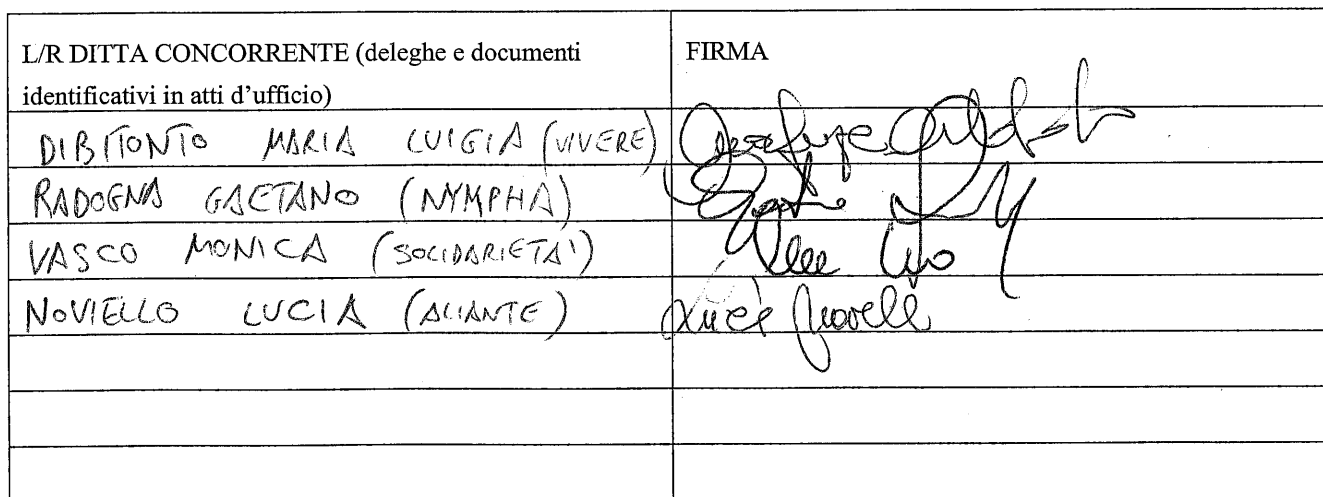 L/R DITTA CONCORRENTE (deleghe e documenti
identificativi in atti d'ufficio)
FIRMA
DIBITONTO MARIA LUIGIA (VIVERE)
RADOGNA GAETANO (NYMPHA)
VASCO MONICA (SOLIDARIETA')
NOVIELLO LUCIA (ALIANTE)